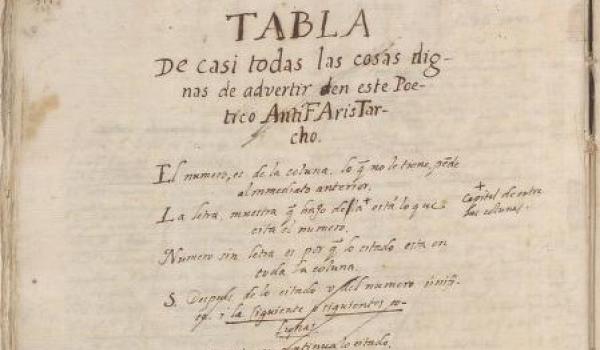 TABLA
De casi todas las cosas dig-
nas de advertir den este Poe-
tico AntiFArisTar-
cho.
El numero, es de la coluna. lo q̃ no le tiene, pẽde
al immediato anterior.
La letra, muestra q̃ bajo della + está lo que
+ Capital de entre
las colunas.
esta el numero.
Numero sin letra es por q̃ lo citado esta en
toda la coluna.
S. Despues de lo citado v del numero
i la siguiente o siguientes co-
lunas
continua lo citado.